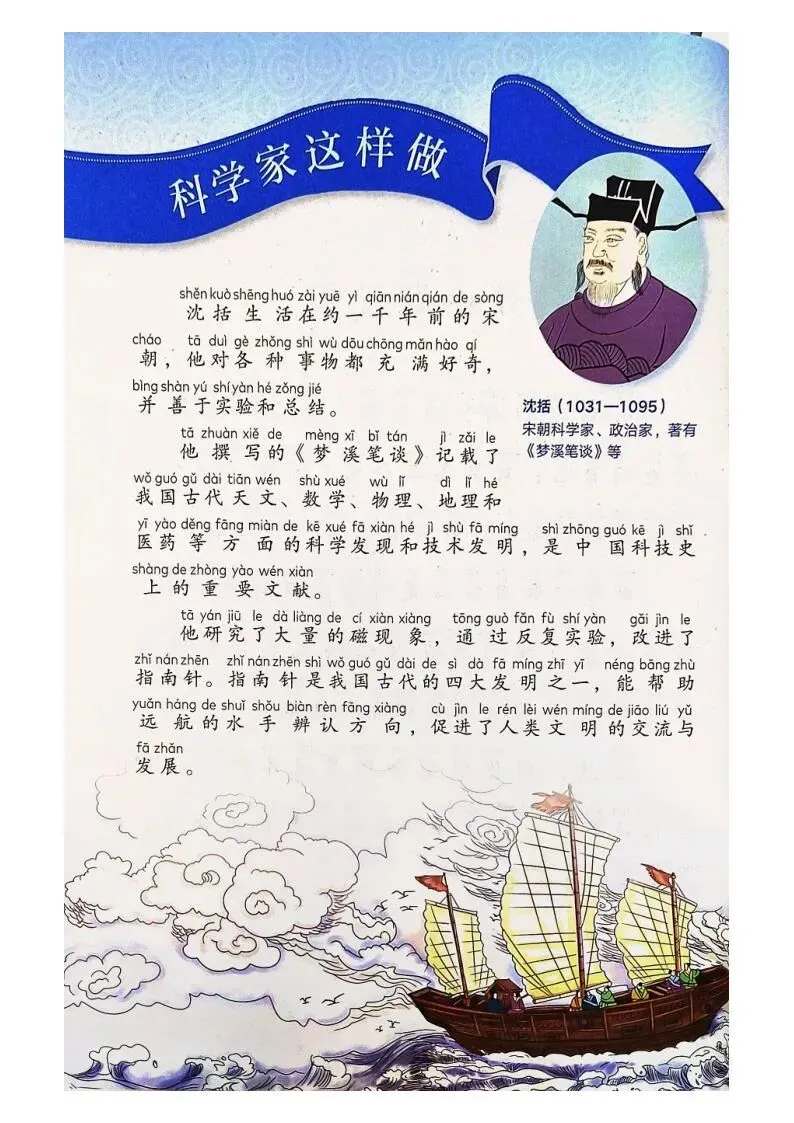 科学家这样做
shěn kuò shēng huó zài yuē yì qiān nián qián de sòng
沈括生活在约一千年前的宋
cháo tā duì gè zhǒng shì wù dōu chōng mǎn hào qí
朝，他对各种事物都充满好奇，
bìng shàn yú shí yàn hé zǒng jié
并善于实验和总结。
沈括（1031—1095）
宋朝科学家、政治家，著有
《梦溪笔谈》等
tā zhuàn xiě de mèng xī bǐ tán jì zǎi le
他撰写的《梦溪笔谈》记载了
wǒ guó gǔ dài tiān wén shù xué wù lǐ dì lǐ hé
我国古代天文、数学、物理、地理和
yī yào děng fāng miàn de kē xué fā xiàn hé jì shù fā míng shì zhōng guó kē jì shǐ
医药等方面的科学发现和技术发明，是中国科技史
shàng de zhòng yào wén xiàn
上的重要文献。
tā yán jiū le dà liàng de cí xiàn xiàng tōng guò fǎn fù shí yàn gǎi jìn le
他研究了大量的磁现象，通过反复实验，改进了
zhǐ nán zhēn zhǐ nán zhēn shì wǒ guó gǔ dài de sì dà fā míng zhī yī néng bāng zhù
指南针。指南针是我国古代的四大发明之一，能帮助
yuǎn háng de shuǐ shǒu biàn rèn fāng xiàng cù jìn le rén lèi wén míng de jiāo liú yǔ
远航的水手辨认方向，促进了人类文明的交流与
fā zhǎn
发展。